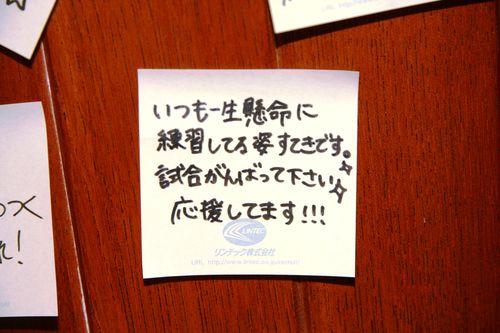 いつも一生懸命に
練習してる姿すてきです。
試合がんばって下さい
応援してます!!!
LINTEC
リンテック株式会社